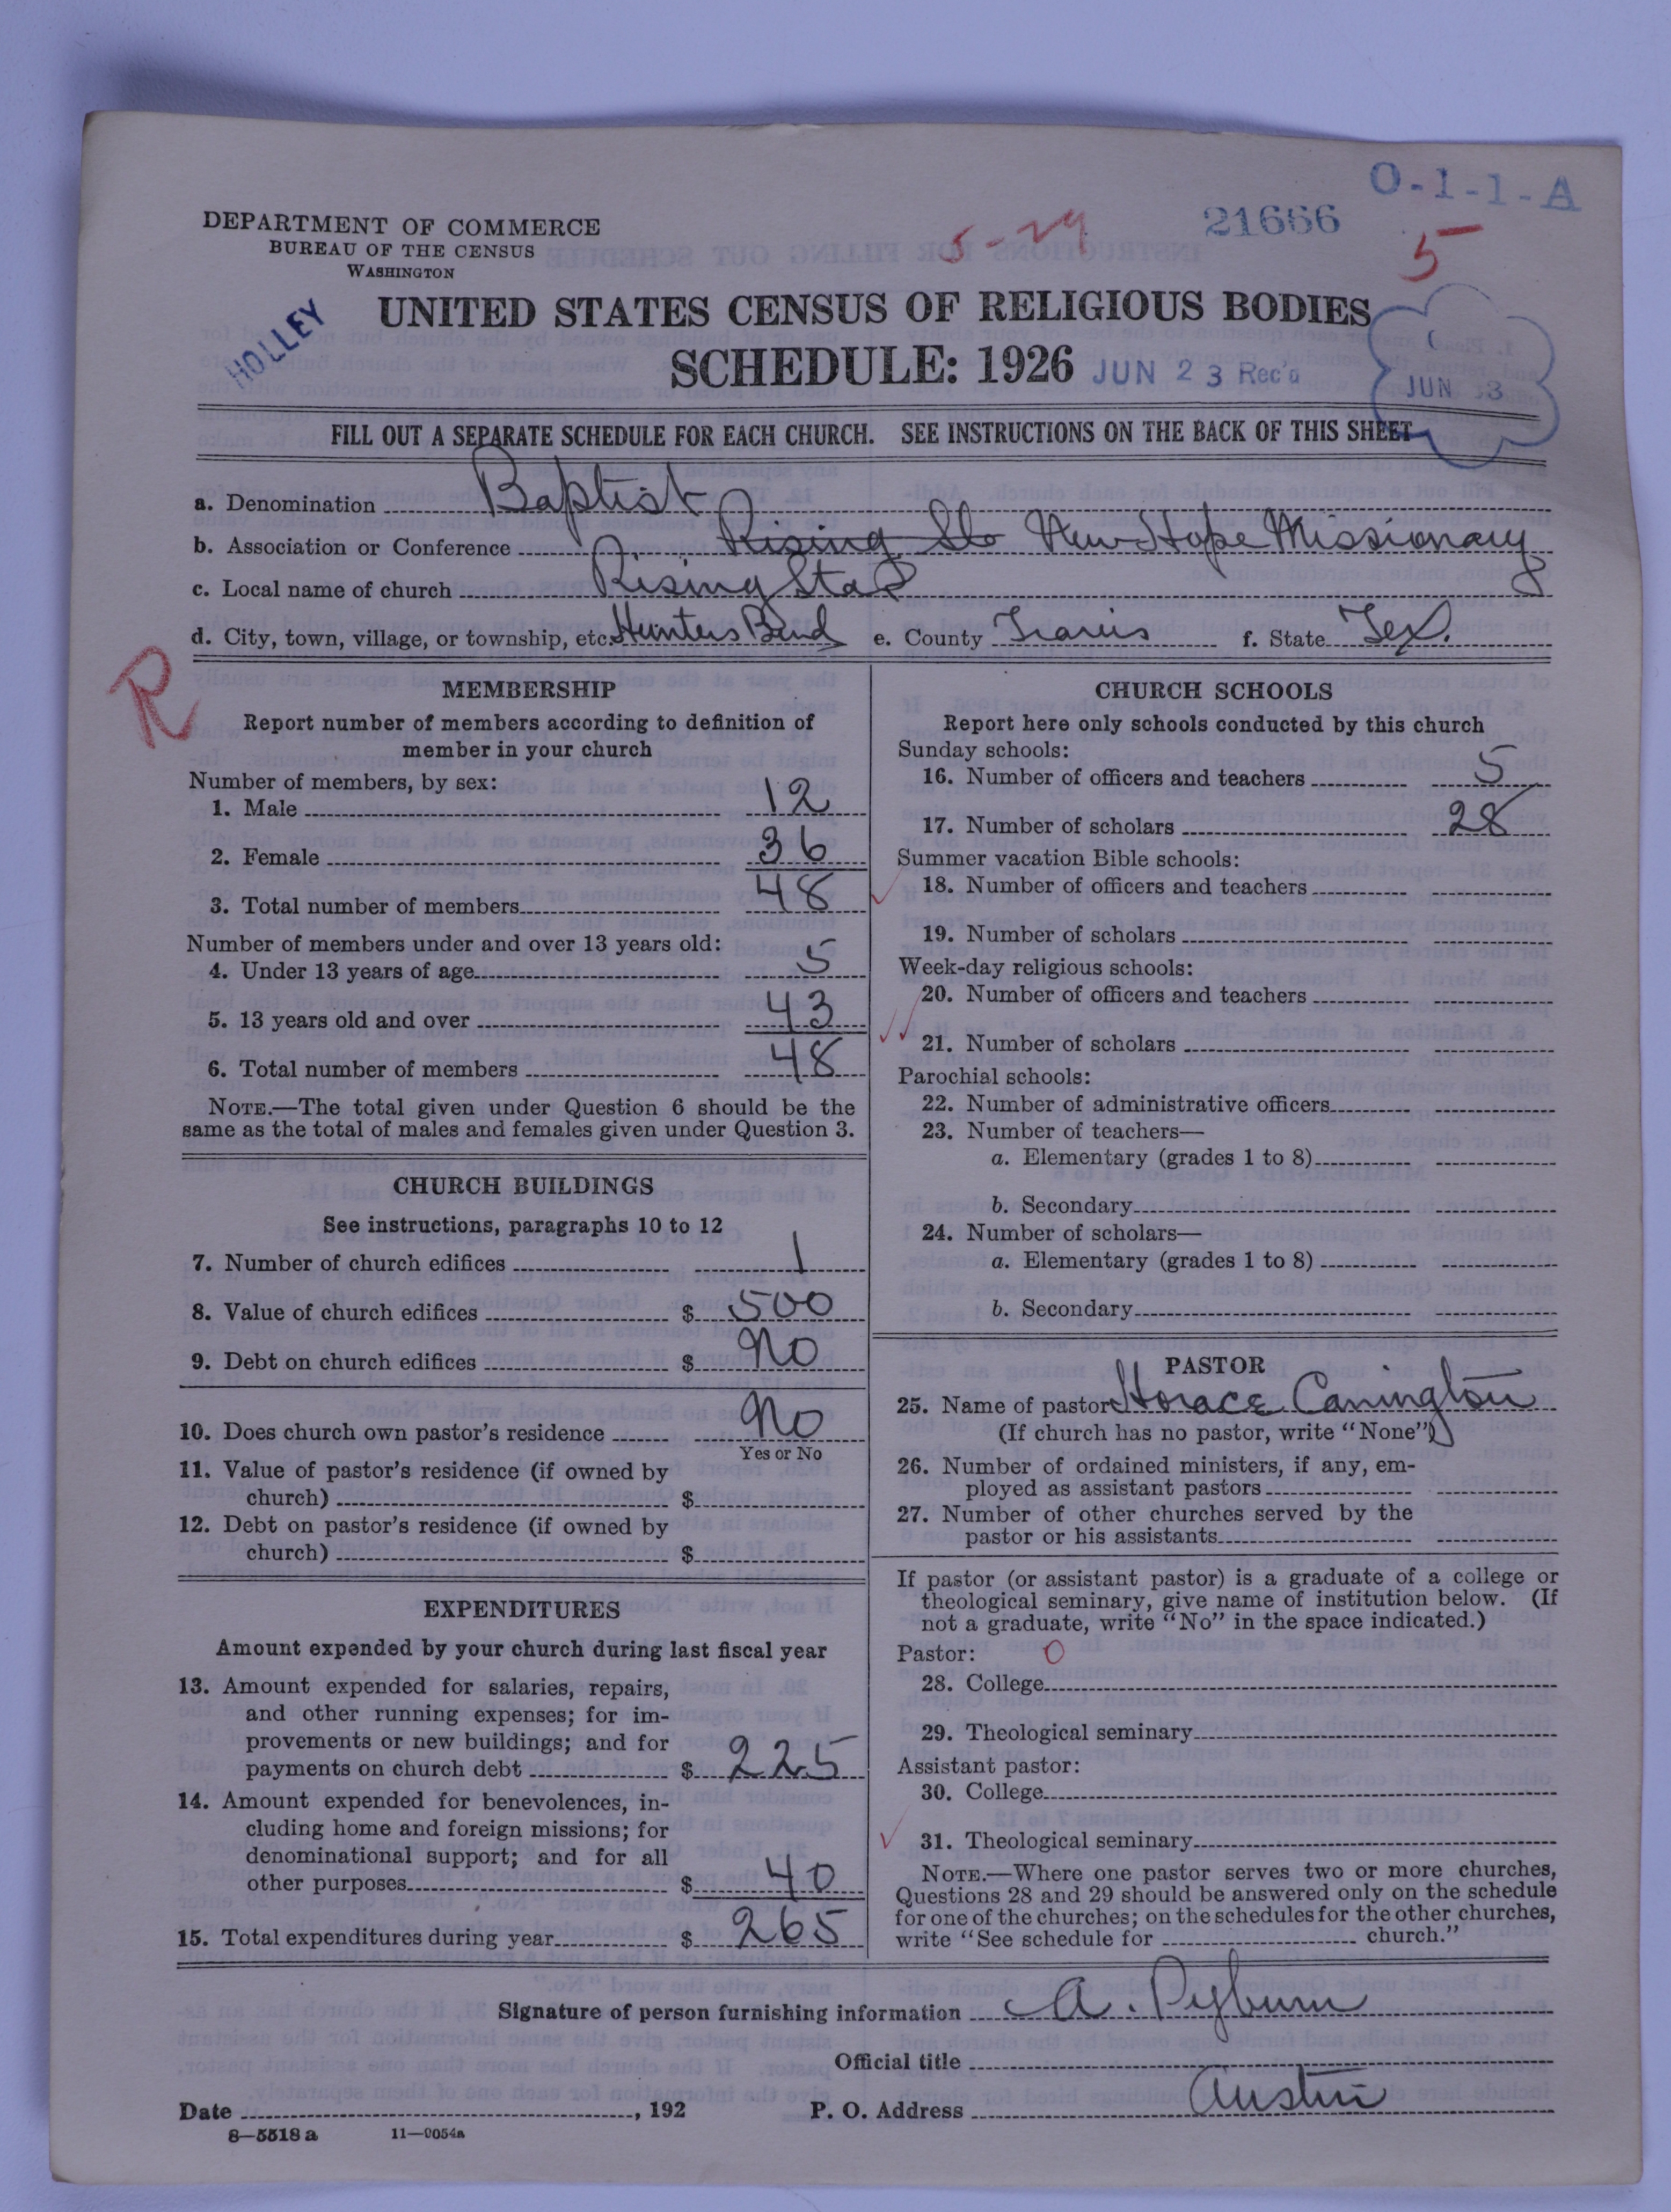 O-1-1-A
DEPARTMENT OF COMMERCE
BUREAU OF THE CENSUS
WASHINGTON
5-29
21666
5
HOLLEY
UNITED STATES CENSUS OF RELIGIOUS BODIES
SCHEDULE: 1926
JUN 23 Rec'd
JUN 3
FILL OUT A SEPARATE SCHEDULE FOR EACH CHURCH. SEE INSTRUCTIONS ON THE BACK OF THIS SHEET
a. Denomination Baptist
b. Association or Conference Rising New Hope Missionary
c. Local name of church Rising Star
d. City, town, village, or township, etc. Hunters Bend e. County Travis f. State Tex.
R
MEMBERSHIP
Report number of members according to definition of
member in your church
Number of members, by sex:
1. Male 12
2. Female 36
3. Total number of members 48
Number of members under and over 13 years old:
4. Under 13 years of age 5
5. 13 years old and over 43
6. Total number of members 48
NOTE.—The total given under Question 6 should be the
same as the total of males and females given under Question 3.
CHURCH BUILDINGS
See instructions, paragraphs 10 to 12
7. Number of church edifices 1
8. Value of church edifices $ 500
9. Debt on church edifices $ No
10. Does church own pastor's residence No
Yes or No
11. Value of pastor's residence (if owned by
church) $
12. Debt on pastor's residence (if owned by
church) $
EXPENDITURES
Amount expended by your church during last fiscal year
13. Amount expended for salaries, repairs,
and other running expenses; for im-
provements or new buildings; and for
payments on church debt $ 225
14. Amount expended for benevolences, in-
cluding home and foreign missions; for
denominational support; and for all
other purposes $ 40
15. Total expenditures during year $ 265
CHURCH SCHOOLS
Report here only schools conducted by this church
Sunday schools:
16. Number of officers and teachers 5
17. Number of scholars 28
Summer vacation Bible schools:
18. Number of officers and teachers
19. Number of scholars
Week-day religious schools:
20. Number of officers and teachers
21. Number of scholars
Parochial schools:
22. Number of administrative officers
23. Number of teachers—
a. Elementary (grades 1 to 8)
b. Secondary
24. Number of scholars—
a. Elementary (grades 1 to 8)
b. Secondary
PASTOR
25. Name of pastor Horace Canington
(If church has no pastor, write "None")
26. Number of ordained ministers, if any, em-
ployed as assistant pastors
27. Number of other churches served by the
pastor or his assistants
If pastor (or assistant pastor) is a graduate of a college or
theological seminary, give name of institution below. (If
not a graduate, write "No" in the space indicated.)
Pastor: 0
28. College
29. Theological seminary
Assistant pastor:
30. College
31. Theological seminary
NOTE.—Where one pastor serves two or more churches,
Questions 28 and 29 should be answered only on the schedule
for one of the churches; on the schedules for the other churches,
write "See schedule for church."
Signature of person furnishing information A. Pyburn
Official title
Date , 192 P. O. Address Austin
8—5518 a 11—9054a